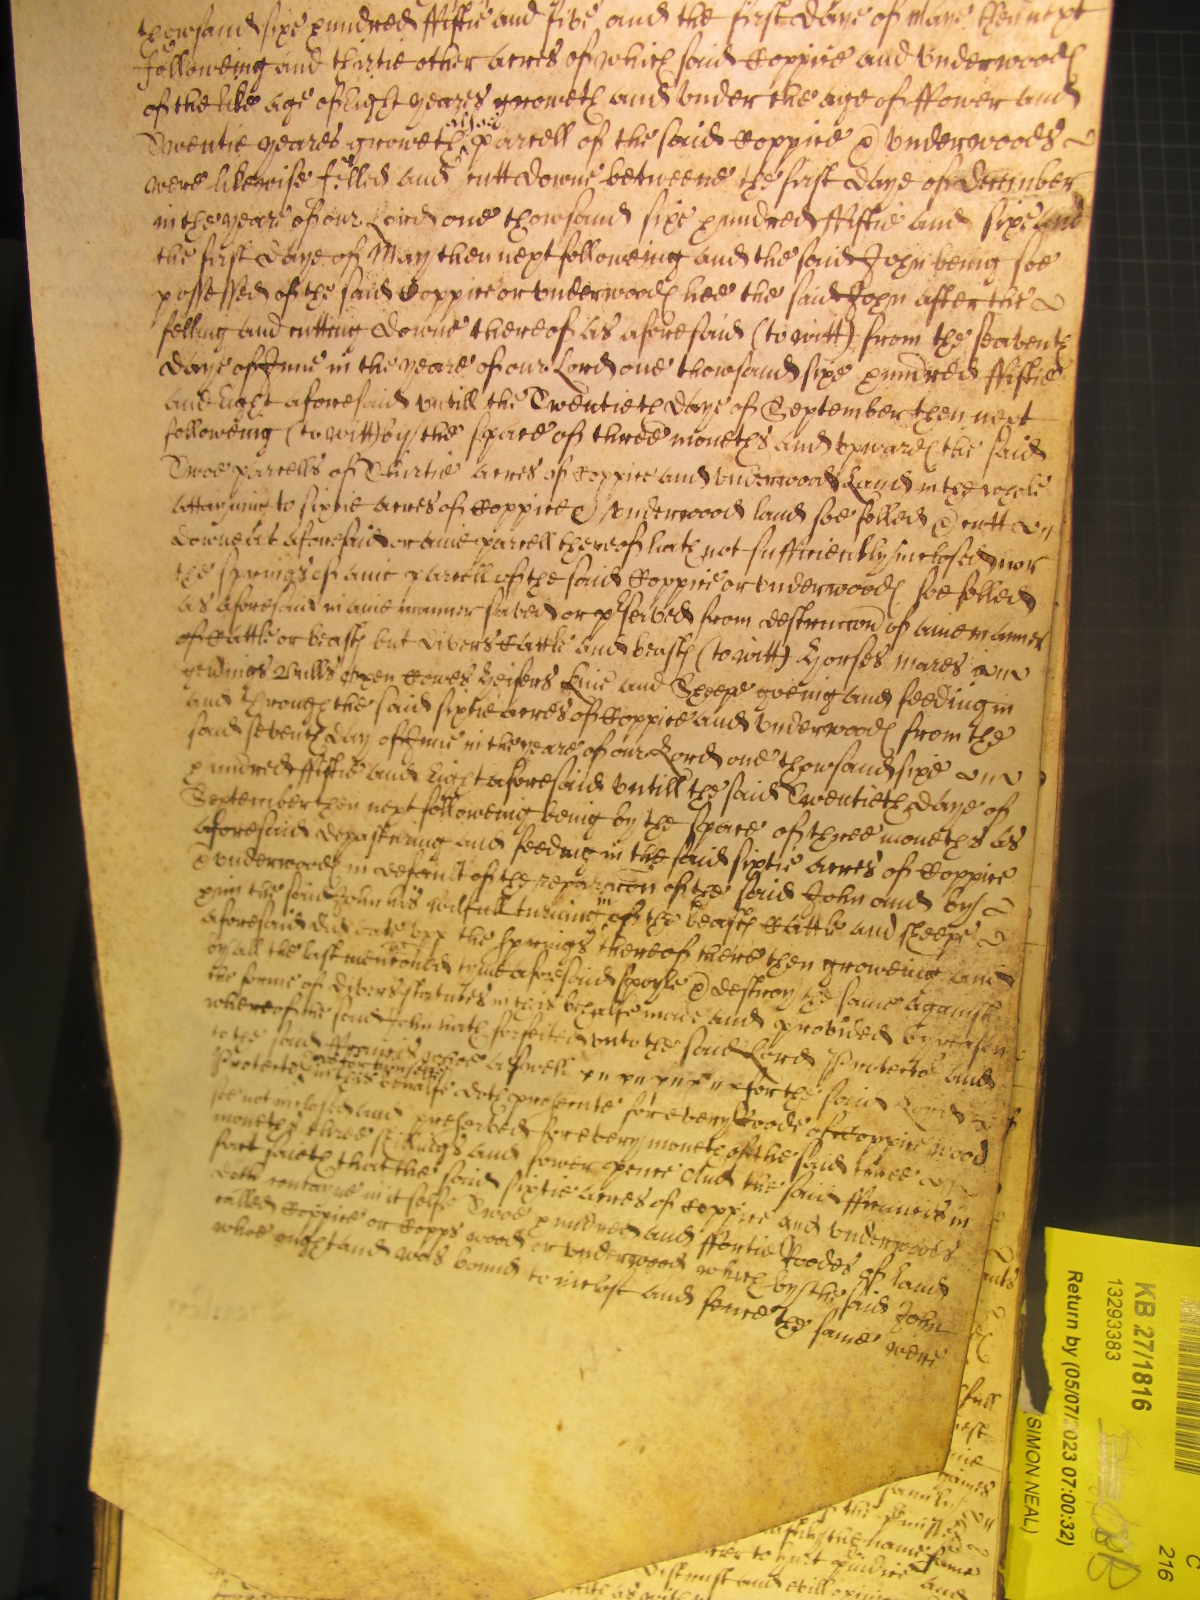 thowsand sixe hundred ffiftie and five and the first daye of Maye then next
followeing and thirtie other acres of which said Coppice and underwoods
of the like age of Eight yeares groweth and under the age of ffower and
Twentie yeares groweth also parcell of the said Coppice & underwoods
were likewise felled and cutt downe betweene the first daye of December
in the yeare of our Lord one thowsand sixe hundred ffiftie and sixe and
the first daye of May then next followeing and the said John being soe
possessed of the said Coppice or underwoods hee the said John after the
felling and cutting downe thereof as aforesaid (to witt) from the seaventh
daye of June in the yeare of our Lord one thowsand sixe hundred ffiftie
and Eight aforesaid untill the Twentieth daye of September then next
followeing (to witt) by the space of three moneths and upwards the said
Twoe parcells of Thirtie acres of Coppice and underwoods Land in the whole
attayning to sixtie acres of Coppice & underwood land soe felled & cutt
downe as aforesaid or anie parcell thereof hath not sufficiently inclosed nor
the springs of anie parcell of the said Coppice or underwoods soe felled
as aforesaid in anie manner saved or pserved from destruccon of anie manner
of Cattle or beasts but divers Cattle and beasts (to witt) horses mares
geldings Bulls oxen Cowes heifers kine and Sheepe goeing and feeding in
and through the said sixtie acres of Coppice and underwoods from the
said seventh day of June in the yeare of our Lord one thowsand sixe
hundred ffiftie and Eight aforesaid untill the said Twentieth daye of
September then next followeing being by the space of three moneths as
aforesaid depasturing and feeding in the said sixtie acres of Coppice
& underwoods in default of the reparacon of the said John and by
him the said John his wilfull turning in of the beasts Cattle and sheepe
aforesaid did eate upp the springs thereof there then groweing and
by all the last menconed tyme aforesaid spoyle & destroy the same against
the forme of divers statutes in this behalfe made and provided by reason
whereof the said John hath forfeited unto the said Lord Protector and
to the said ffrancis whoe aswell for the said Lord
Protector as for himselfe in this behalfe doth prosecute for every Roode of Coppice wood
soe not inclosed and preserved for every moneth of the said three
moneths three shillings and fower pence And the said ffrancis in
fact saieth that the said sixtie acres of Coppice and underwoods
doth containe in it selfe Twoe hundred and ffortie Roodes of land
called Coppice or Copps wood or underwood which by the said John
whoe ought and was bound to inclose and fence the same were
KB 27/1816
13293383
Return by (05/07/2023 07:00:32)
(SIMON NEAL)
C
216